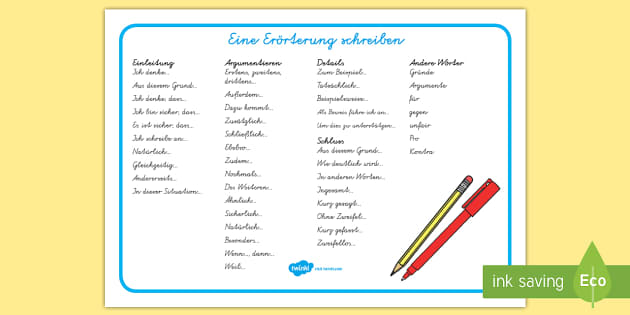 Eine Erörterung schreiben
Einleitung
Ich denke...
Aus diesem Grund...
Ich denke, dass...
Ich bin sicher, dass...
Es ist sicher, dass...
Ich schreibe an...
Natürlich...
Gleichzeitig...
Andererseits...
In dieser Situation...
Argumentieren
Erstens, zweitens,
drittens...
Außerdem...
Dazu kommt...
Zusätzlich...
Schließlich...
Ebeber...
Zudem...
Nochmals...
Des Weiteren...
Ähnlich...
Sicherlich...
Natürlich...
Besonders...
Wenn..., dann...
Weil...
Details
Zum Beispiel...
Tatsächlich...
Beispielsweise...
Als Beweis führe ich an...
Um dies zu unterstützen...
Schluss
Aus diesem Grund...
Wie deutlich wird...
In anderen Worten...
Insgesamt...
Kurz gesagt...
Ohne Zweifel...
Kurz gefasst...
Zweifellos...
Andere Wörter
Gründe
Argumente
für
gegen
unfair
Pro
Kontra
twinkl
ink saving
Eco